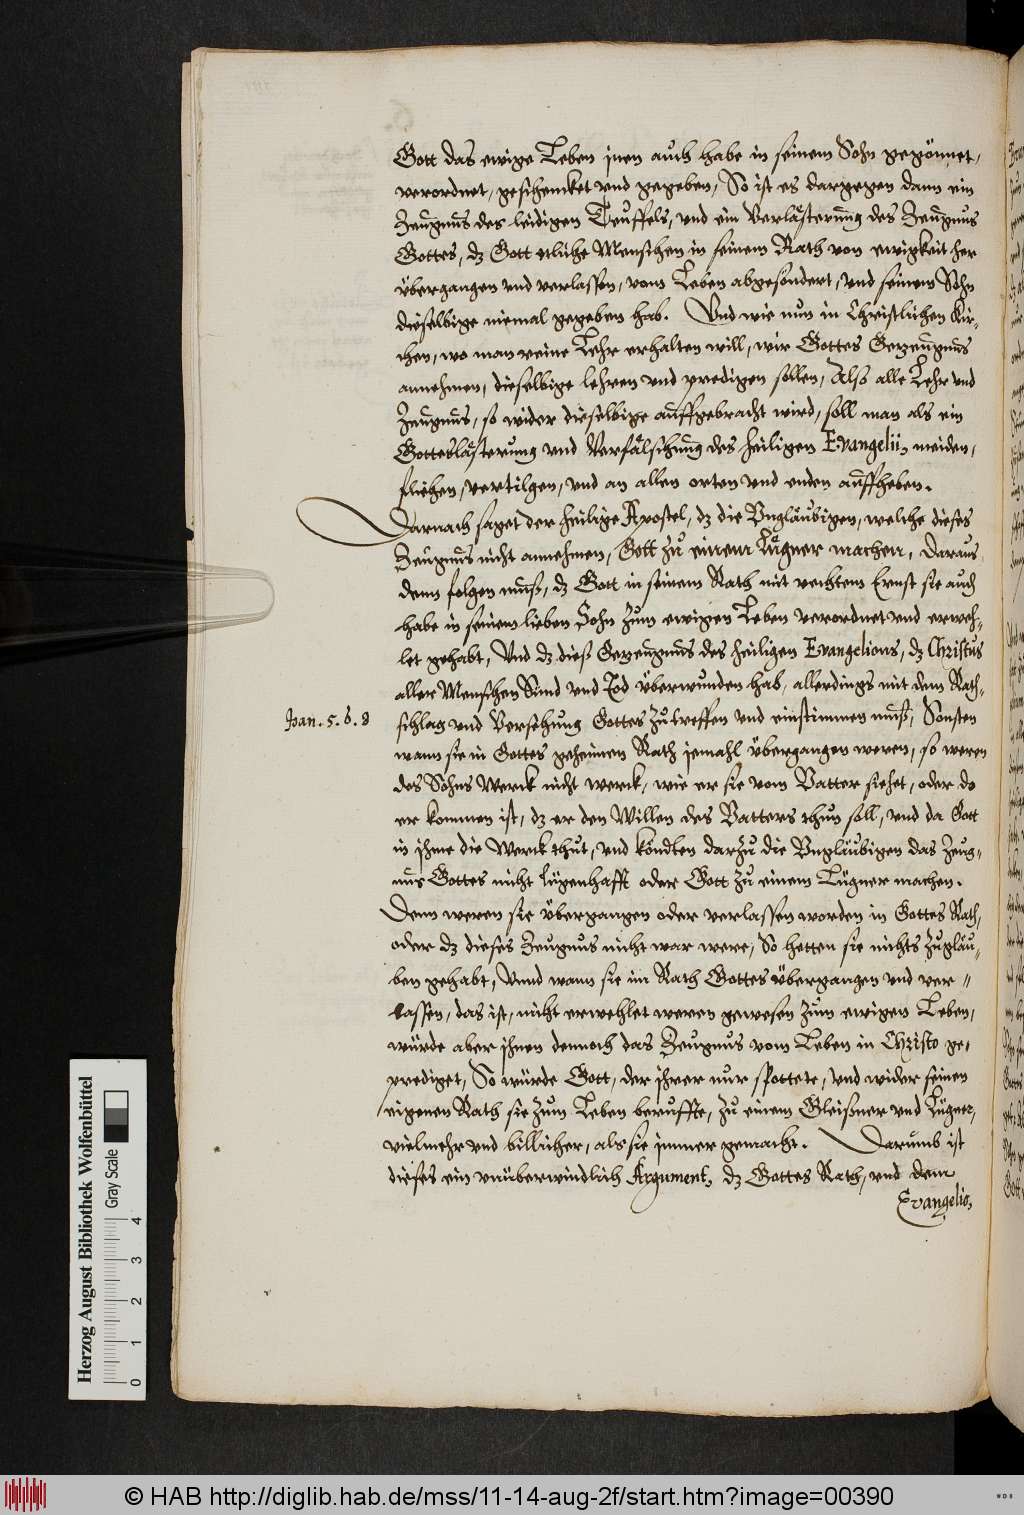 Gott das ewige Leben jnen auch habe in seinem Sohn gegönnet,
verordnet, geschencket vnd gegeben, So ist es dargegen dann ein
Zeugnus des leidigen Teuffels, vnd ein Verlästerung des Zeugnus
Gottes, dz Gott etliche Menschen in seinem Rath von ewigkeit her
übergangen vnd verlassen, vom Leben abgesondert, vnd seinem Sohn
dieselbige niemal gegeben hab. Vnd wie nun in Christlichen Kir-
chen, wo man reine Lehr erhalten will, wir Gottes Gezeugnus
annehmen, dieselbige lehren vnd predigen sollen, Also alle Lehr vnd
Zeugnus, so wider dieselbige auffgebracht wird, soll man als ein
Gotteslästerung vnd Verfälschung des heiligen Evangelii, meiden,
fliehen, vertilgen, vnd an allen orten vnd enden auffheben.
Darnach saget der heilige Apostel, dz die Vngläubigen, welche dieses
Zeugnus nicht annehmen, Gott zu einem Lügner machen, Daraus
denn folgen muß, dz Gott in seinem Rath mit rechtem Ernst sie auch
habe in seinem lieben Sohn zum ewigen Leben verordnet vnd erweh-
let gehabt, Vnd dz dieß Gezeugnus des heiligen Evangelions, dz Christus
aller Menschen Sünd vnd Tod überwunden hab, allerdings mit dem Rath-
Joan. 5. 6. 8
schlag vnd Versehung Gottes zutreffen vnd einstimmen muß, Sonsten
wann sie in Gottes geheimen Rath jemahl übergangen weren, so weren
des Sohns Werck nicht werck, wie er sie vom Vatter siehet, oder do
er kommen ist, dz er den Willen des Vatters thun soll, vnd da Gott
in jhme die Werck thut, vnd köndten darzu die Vngläubigen das Zeug-
nus Gottes nicht lügenhafft oder Gott zu einem Lügner machen.
Denn weren sie übergangen oder verlassen worden in Gottes Rath,
oder dz dieses Zeugnus nicht war were, So hetten sie nichts zugläu-
ben gehabt, Vnnd wann sie im Rath Gottes übergangen vnd ver-
lassen, das ist, nicht erwehlet weren gewesen zum ewigen Leben,
würde aber jhnen dennoch das Zeugnus vom Leben in Christo ge-
prediget, So würde Gott, der jhrer nur spottete, vnd wider seinen
eigenen Rath sie zum Leben beruffte, zu einem Gleißner vnd Lügner,
vielmehr vnd billicher, als sie immer gemacht. Darumb ist
dieses ein vnüberwindlich Argument, dz Gottes Rath, vnd dem
Evangelio,
Herzog August Bibliothek Wolfenbüttel
Gray Scale
0 1 2 3 4
© HAB http://diglib.hab.de/mss/11-14-aug-2f/start.htm?image=00390